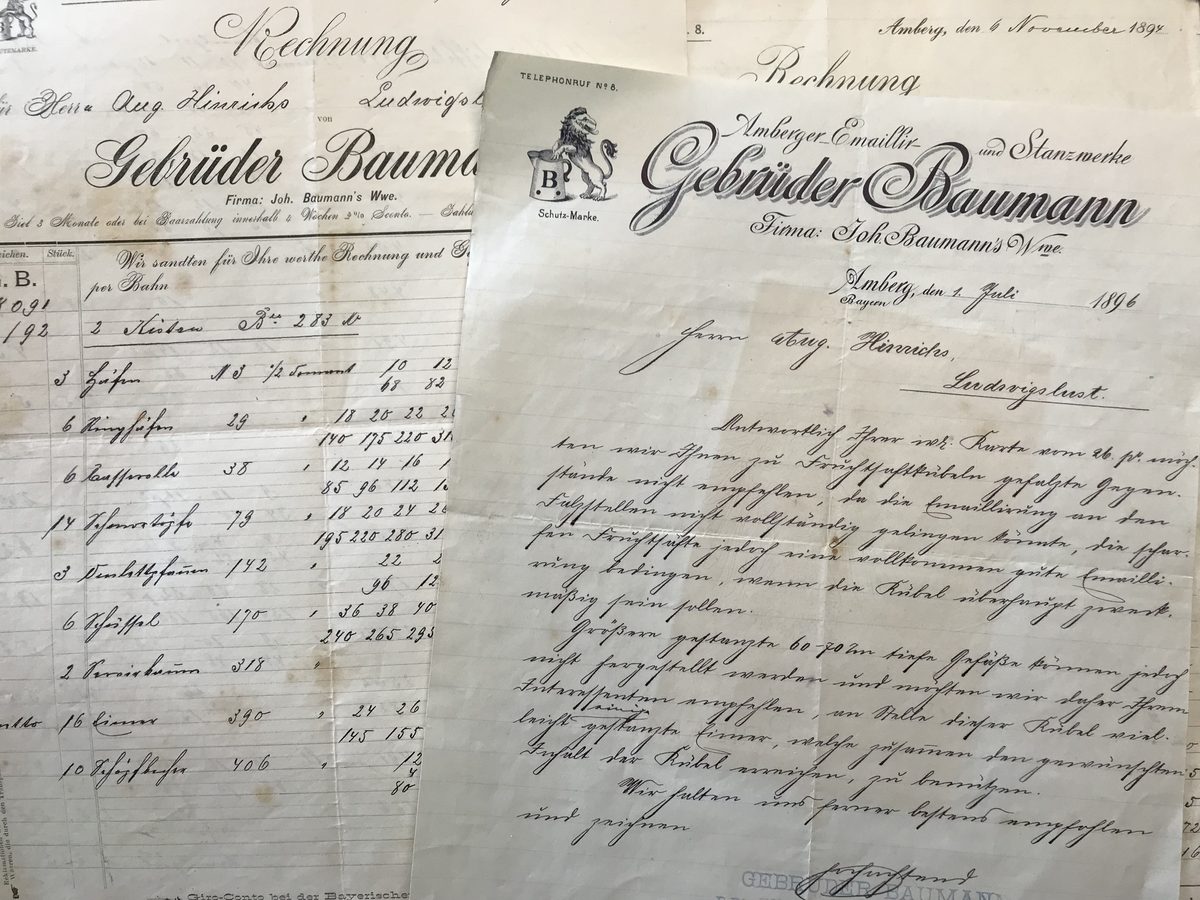 Rechnung
Herrn Aug. Hinrichs Ludwigsl
von
Gebrüder Bauma
Firma: Joh. Baumann's Wwe.
Ziel 3 Monate oder bei Baarzahlung innerhalb 4 Wochen 2% Sconto. — Zahlb
eichen. Stück.
Wir sandten für Ihre werthe Rechnung und Ge
per Bahn
. B.
8091
192
2 Kisten Bto 283 K
3 Häfen N 3 1/2 10 12
68 82
6 Ringhäfen 29 " 18 20 22 2
140 175 220 31
6 Casserolle 38 " 12 14 16 1
85 96 112 1
14 Schmortöpfe 79 " 18 20 24 26
195 220 280 31
3 Omlettpfannen 142 " 22 2
96 12
6 Schüssel 170 " 36 38 40
240 265 295
2 318 "
16 Eimer 390 " 24 26
145 155
10 Schöpfbecher 406 " 12
4
80
Giro-Conto bei der Bayerische
. 8.
Amberg, den 6 November 1894
Rechnung
TELEPHONRUF No 8.
B
Schutz-Marke.
Amberger-Emaillir- und Stanzwerke
Gebrüder Baumann
Firma: Joh. Baumann's Wwe.
Amberg, den 1. Juli 1896
Bayern
Herrn Aug. Hinrichs,
Ludwigslust.
Antwortlich Ihrer wth. Karte vom 26. ps. möch
ten wir Ihnen zu Fruchtsaftkübeln gefalzte Gegen-
stände nicht empfehlen, da die Emaillirung an den
Falzstellen nicht vollständig gelingen könnte, die schar-
fen Fruchtsäfte jedoch eine vollkommen gute Emailli-
rung bedingen, wenn die Kübel überhaupt zweck-
mäßig sein sollen.
Größere gestanzte 60-70 cm tiefe Gefäße können jedoch
nicht hergestellt werden und möchten wir daher Ihrem
Interessenten empfehlen, an Stelle dieser Kübel viel-
leicht einige gestanzte Eimer, welche zusammen den gewünschten
Inhalt der Kübel erreichen, zu benützen.
Wir halten uns ferner bestens empfohlen
und zeichnen
Hochachtend
GEBRÜDER BAUMAN